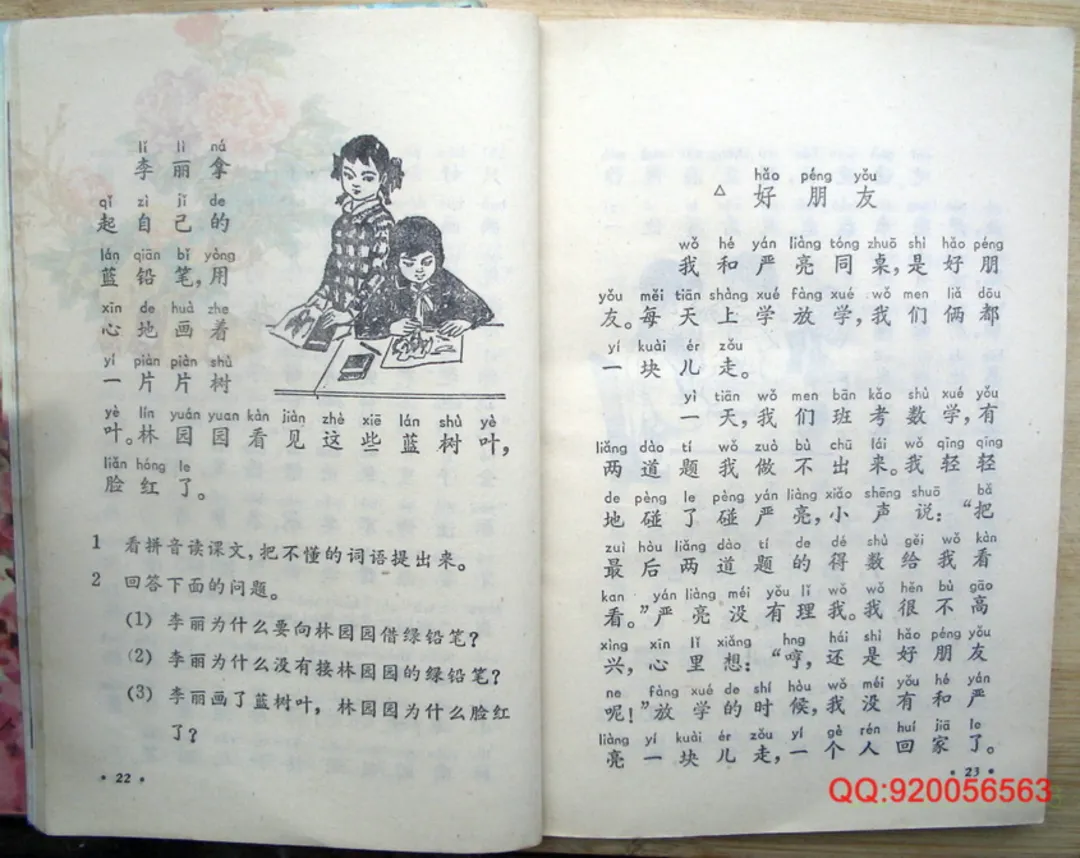 lǐ lì ná
李丽拿
qǐ zì jǐ de
起自己的
lán qiān bǐ yòng
蓝铅笔,用
xīn de huà zhe
心地画着
yí piàn piàn shù
一片片树
yè lín yuán yuan kàn jiàn zhè xiē lán shù yè
叶。林园园看见这些蓝树叶,
liǎn hóng le
脸红了。
1 看拼音读课文,把不懂的词语提出来。
2 回答下面的问题。
(1) 李丽为什么要向林园园借绿铅笔?
(2) 李丽为什么没有接林园园的绿铅笔?
(3) 李丽画了蓝树叶,林园园为什么脸红
了?
• 22 •
hǎo péng yǒu
△ 好朋友
wǒ hé yán liàng tóng zhuō shì hǎo péng
我和严亮同桌,是好朋
yǒu měi tiān shàng xué fàng xué wǒ men liǎ dōu
友。每天上学放学,我们俩都
yí kuài ér zǒu
一块儿走。
yì tiān wǒ men bān kǎo shù xué yǒu
一天,我们班考数学,有
liǎng dào tí wǒ zuò bù chū lái wǒ qīng qīng
两道题我做不出来。我轻轻
de pèng le pèng yán liàng xiǎo shēng shuō bǎ
地碰了碰严亮,小声说:“把
zuì hòu liǎng dào tí de dé shù gěi wǒ kàn
最后两道题的得数给我看
kan yán liàng méi yǒu lǐ wǒ wǒ hěn bù gāo
看。”严亮没有理我。我很不高
xìng xīn lǐ xiǎng hng hái shì hǎo péng yǒu
兴,心里想:“哼,还是好朋友
ne fàng xué de shí hòu wǒ méi yǒu hé yán
呢!”放学的时候,我没有和严
liàng yí kuài ér zǒu yí gè rén huí jiā le
亮一块儿走,一个人回家了。
• 23 •
QQ:920056563